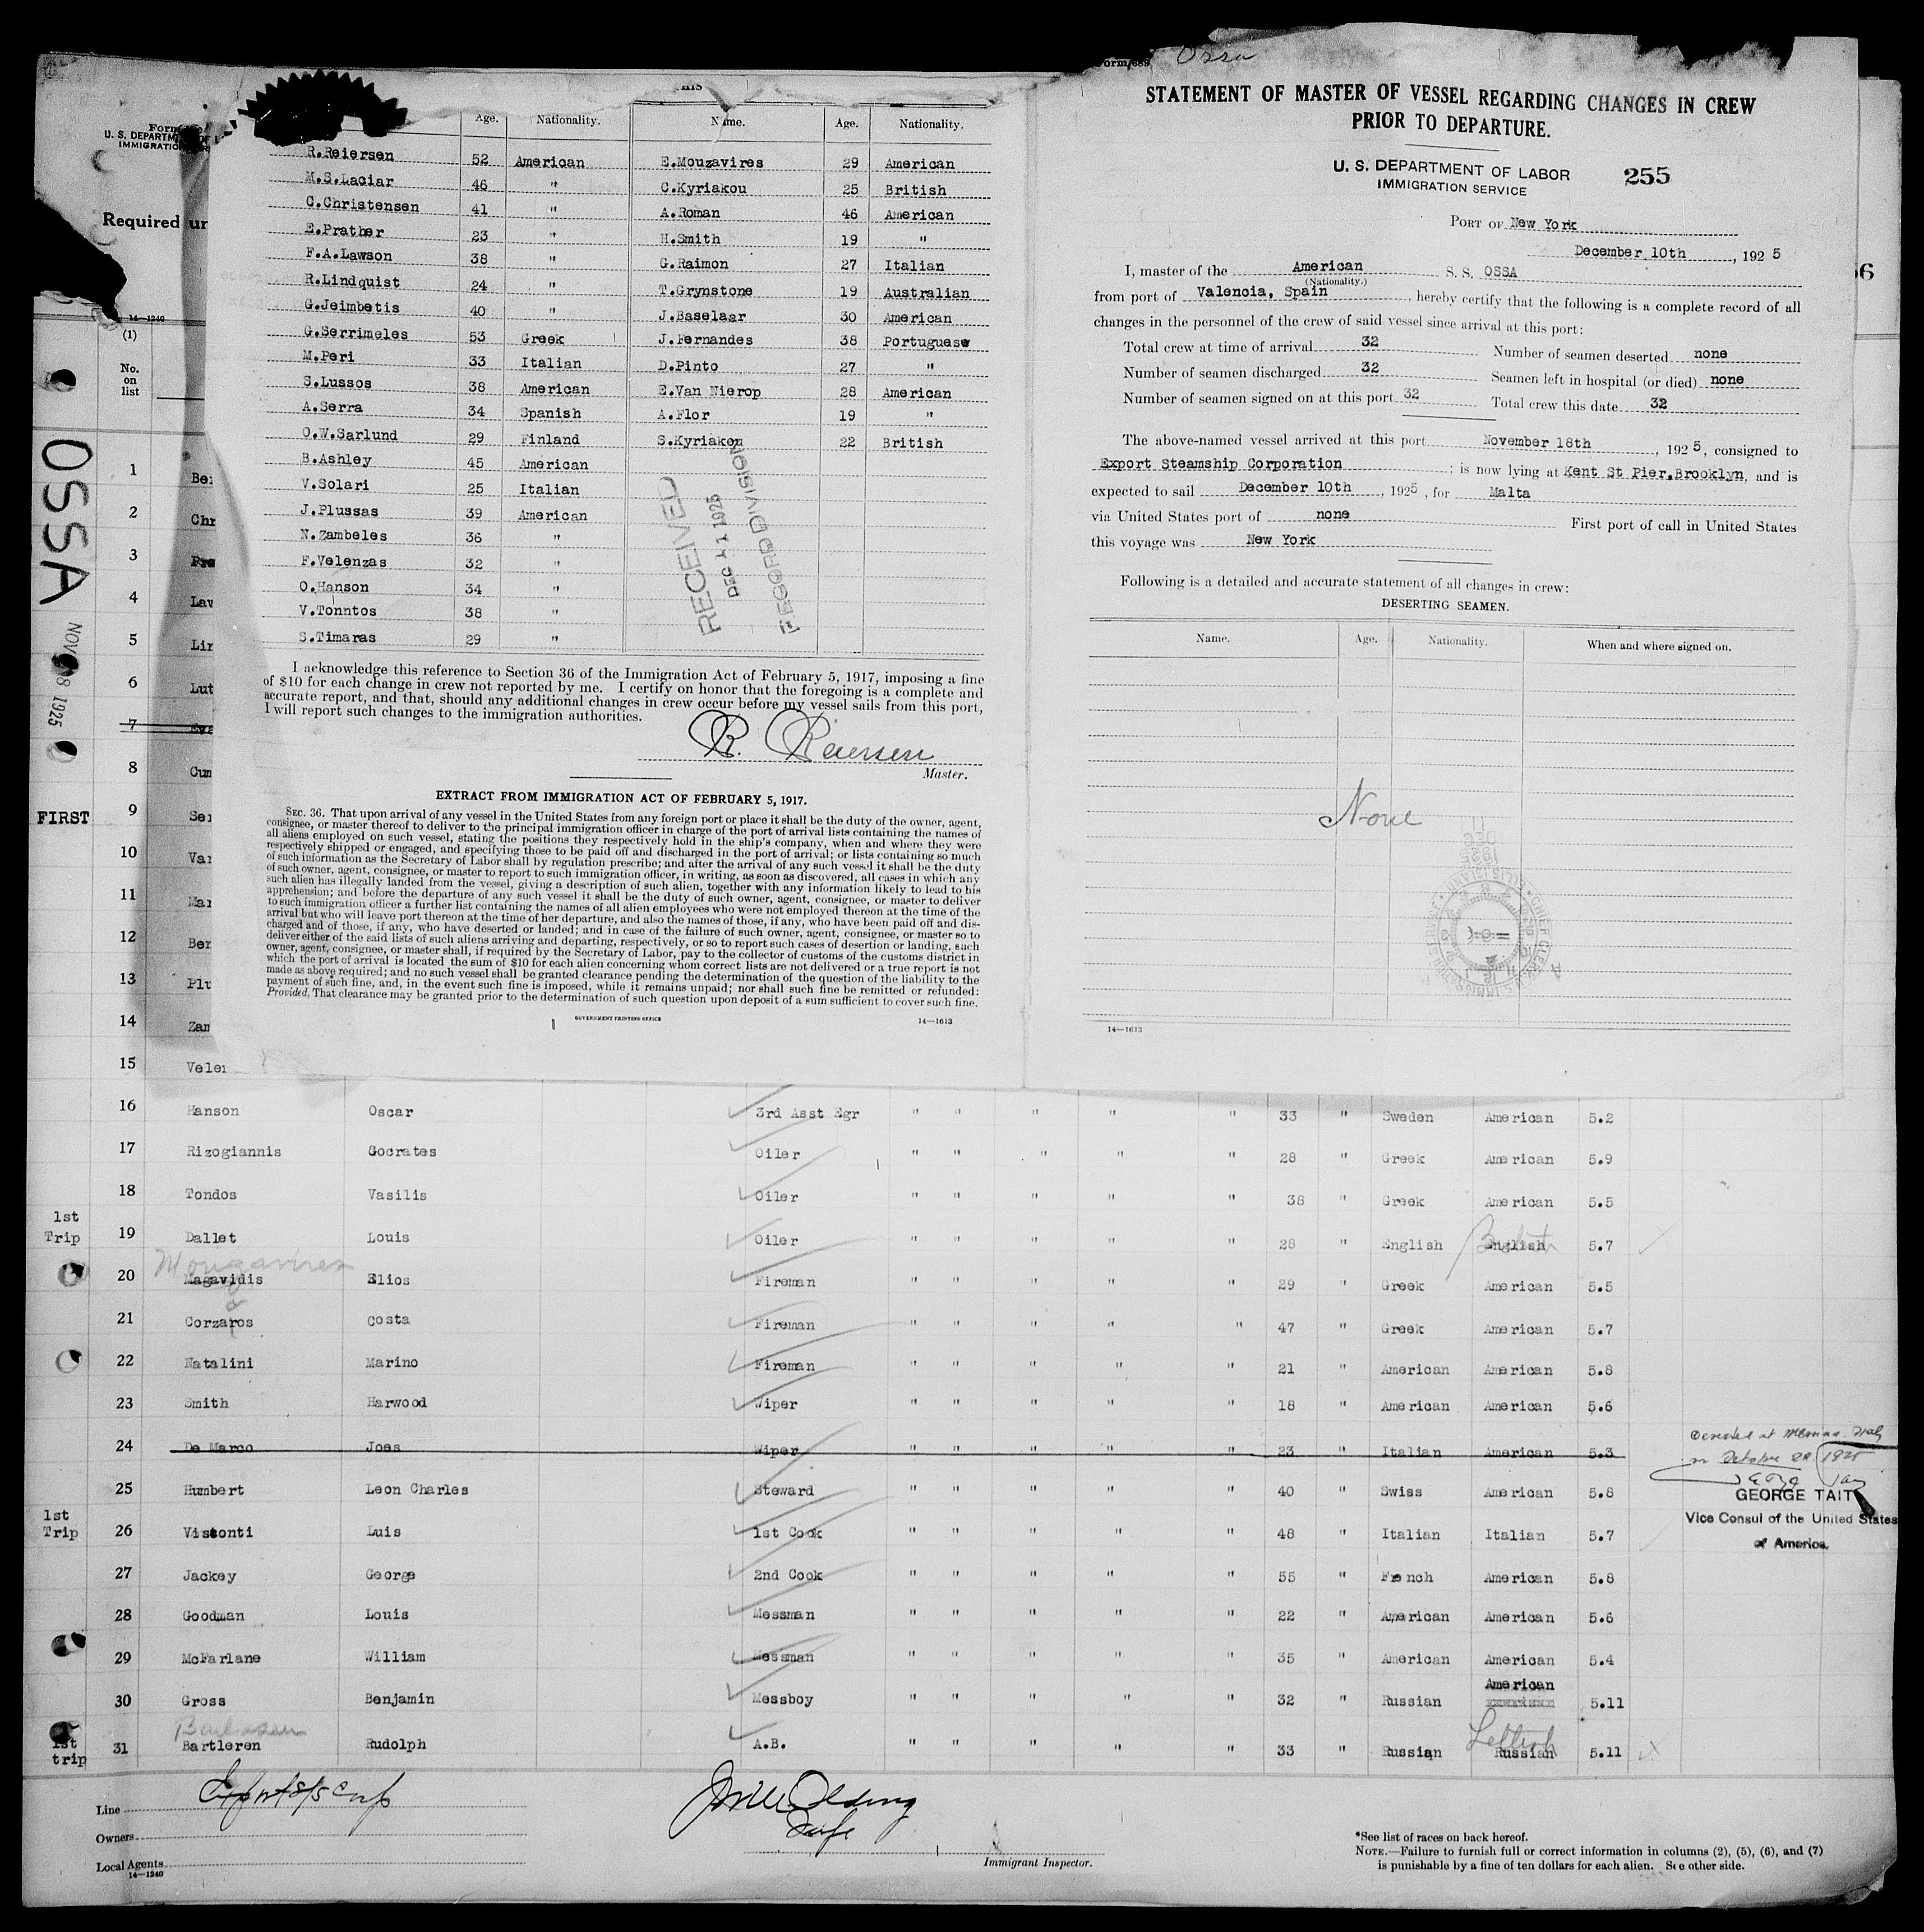 OSSA
NOV 18 1925
U. S. DEPARTMENT OF
IMMIGRATION
Required un
14—1240
(1)
No.
on
list
HIS
Age. Nationality. Name. Age. Nationality.
R.Reiersen 52 American E.Mouzavires 29 American
M.S.Laciar 46 " C.Kyriakou 25 British
C.Christensen 41 " A.Roman 46 American
E.Prather 23 " H.Smith 19 "
F.A.Lawson 38 " G.Raimon 27 Italian
R.Lindquist 24 " T.Grynstone 19 Australian
G.Jeimbetis 40 " J.Baselaar 30 American
G.Serrimeles 53 Greek J.Fernandes 38 Portuguese
M.Peri 33 Italian D.Pinto 27 "
S.Lussos 38 American E.Van Nierop 28 American
A.Serra 34 Spanish A.Flor 19 "
O.W.Sarlund 29 Finland S.Kyriakou 22 British
B.Ashley 45 American
V.Solari 25 Italian
J.Plussas 39 American
N.Zambeles 36 "
F.Velenzas 32 "
O.Hanson 34 "
V.Tonntos 38 "
S.Timaras 29 "
RECEIVED
DEC 11 1925
RECORD DIVISION
I acknowledge this reference to Section 36 of the Immigration Act of February 5, 1917, imposing a fine
of $10 for each change in crew not reported by me. I certify on honor that the foregoing is a complete and
accurate report, and that, should any additional changes in crew occur before my vessel sails from this port,
I will report such changes to the immigration authorities.
R. Reiersen
Master.
EXTRACT FROM IMMIGRATION ACT OF FEBRUARY 5, 1917.
SEC. 36. That upon arrival of any vessel in the United States from any foreign port or place it shall be the duty of the owner, agent,
consignee, or master thereof to deliver to the principal immigration officer in charge of the port of arrival lists containing the names of
all aliens employed on such vessel, stating the positions they respectively hold in the ship's company, when and where they were
respectively shipped or engaged, and specifying those to be paid off and discharged in the port of arrival; or lists containing so much
of such information as the Secretary of Labor shall by regulation prescribe; and after the arrival of any such vessel it shall be the duty
of such owner, agent, consignee, or master to report to such immigration officer, in writing, as soon as discovered, all cases in which any
such alien has illegally landed from the vessel, giving a description of such alien, together with any information likely to lead to his
apprehension; and before the departure of any such vessel it shall be the duty of such owner, agent, consignee, or master to deliver
to such immigration officer a further list containing the names of all alien employees who were not employed thereon at the time of the
arrival but who will leave port thereon at the time of her departure, and also the names of those, if any, who have been paid off and dis-
charged and of those, if any, who have deserted or landed; and in case of the failure of such owner, agent, consignee, or master so to
deliver either of the said lists of such aliens arriving and departing, respectively, or so to report such cases of desertion or landing, such
owner, agent, consignee, or master shall, if required by the Secretary of Labor, pay to the collector of customs of the customs district in
which the port of arrival is located the sum of $10 for each alien concerning whom correct lists are not delivered or a true report is not
made as above required; and no such vessel shall be granted clearance pending the determination of the question of the liability to the
payment of such fine, and, in the event such fine is imposed, while it remains unpaid; nor shall such fine be remitted or refunded:
Provided, That clearance may be granted prior to the determination of such question upon deposit of a sum sufficient to cover such fine.
GOVERNMENT PRINTING OFFICE 14—1613
Form 689 Ossa
STATEMENT OF MASTER OF VESSEL REGARDING CHANGES IN CREW
PRIOR TO DEPARTURE.
U. S. DEPARTMENT OF LABOR
IMMIGRATION SERVICE
255
PORT OF New York
December 10th, 1925
I, master of the American S. S. OSSA
(Nationality.)
from port of Valencia, Spain, hereby certify that the following is a complete record of all
changes in the personnel of the crew of said vessel since arrival at this port:
Total crew at time of arrival 32 Number of seamen deserted none
Number of seamen discharged 32 Seamen left in hospital (or died) none
Number of seamen signed on at this port 32 Total crew this date 32
The above-named vessel arrived at this port November 18th, 1925, consigned to
Export Steamship Corporation; is now lying at Kent St Pier,Brooklyn, and is
expected to sail December 10th, 1925, for Malta
via United States port of none First port of call in United States
this voyage was New York
Following is a detailed and accurate statement of all changes in crew:
DESERTING SEAMEN.
Name. Age. Nationality. When and where signed on.
None
14—1613
6
1 Ber
2 Chr
3 Pra
4 Law
5 Lin
6 Lut
7 Eva
8 Cum
FIRST 9 Ser
10 Var
11 Mar
12 Ber
13 Plu
14 Zam
15 Velen
16 Hanson Oscar 3rd Asst Egr " " " " " 33 " Sweden American 5.2
17 Rizogiannis Socrates Oiler " " " " " 28 " Greek American 5.9
18 Tondos Vasilis Oiler " " " " " 38 " Greek American 5.5
1st Trip 19 Dallet Louis Oiler " " " " " 28 " English English British 5.7
Mouzavires
20 Magavidis Elios Fireman " " " " " 29 " Greek American 5.5
21 Corzaros Costa Fireman " " " " " 47 " Greek American 5.7
22 Natalini Marino Fireman " " " " " 21 " American American 5.8
23 Smith Harwood Wiper " " " " " 18 " American American 5.6
24 De Marco Joes Wiper " " " " " 23 " Italian American 5.3
Deserted at Messina. Italy
on October 22 1925
GEORGE TAIT
Vice Consul of the United States
of America.
25 Humbert Leon Charles Steward " " " " " 40 " Swiss American 5.8
1st Trip 26 Visconti Luis 1st Cook " " " " " 48 " Italian Italian 5.7
27 Jackey George 2nd Cook " " " " " 55 " French American 5.8
28 Goodman Louis Messman " " " " " 22 " American American 5.6
29 McFarlane William Messman " " " " " 35 " American American 5.4
30 Gross Benjamin Messboy " " " " " 32 " Russian American 5.11
1st trip 31 Bartleren Rudolph A.B. " " " " " 33 " Russian Russian Lettish 5.11
Line Export S/S Corp
Owners
Local Agents
14—1240
Immigrant Inspector.
*See list of races on back hereof.
NOTE.—Failure to furnish full or correct information in columns (2), (5), (6), and (7)
is punishable by a fine of ten dollars for each alien. See other side.